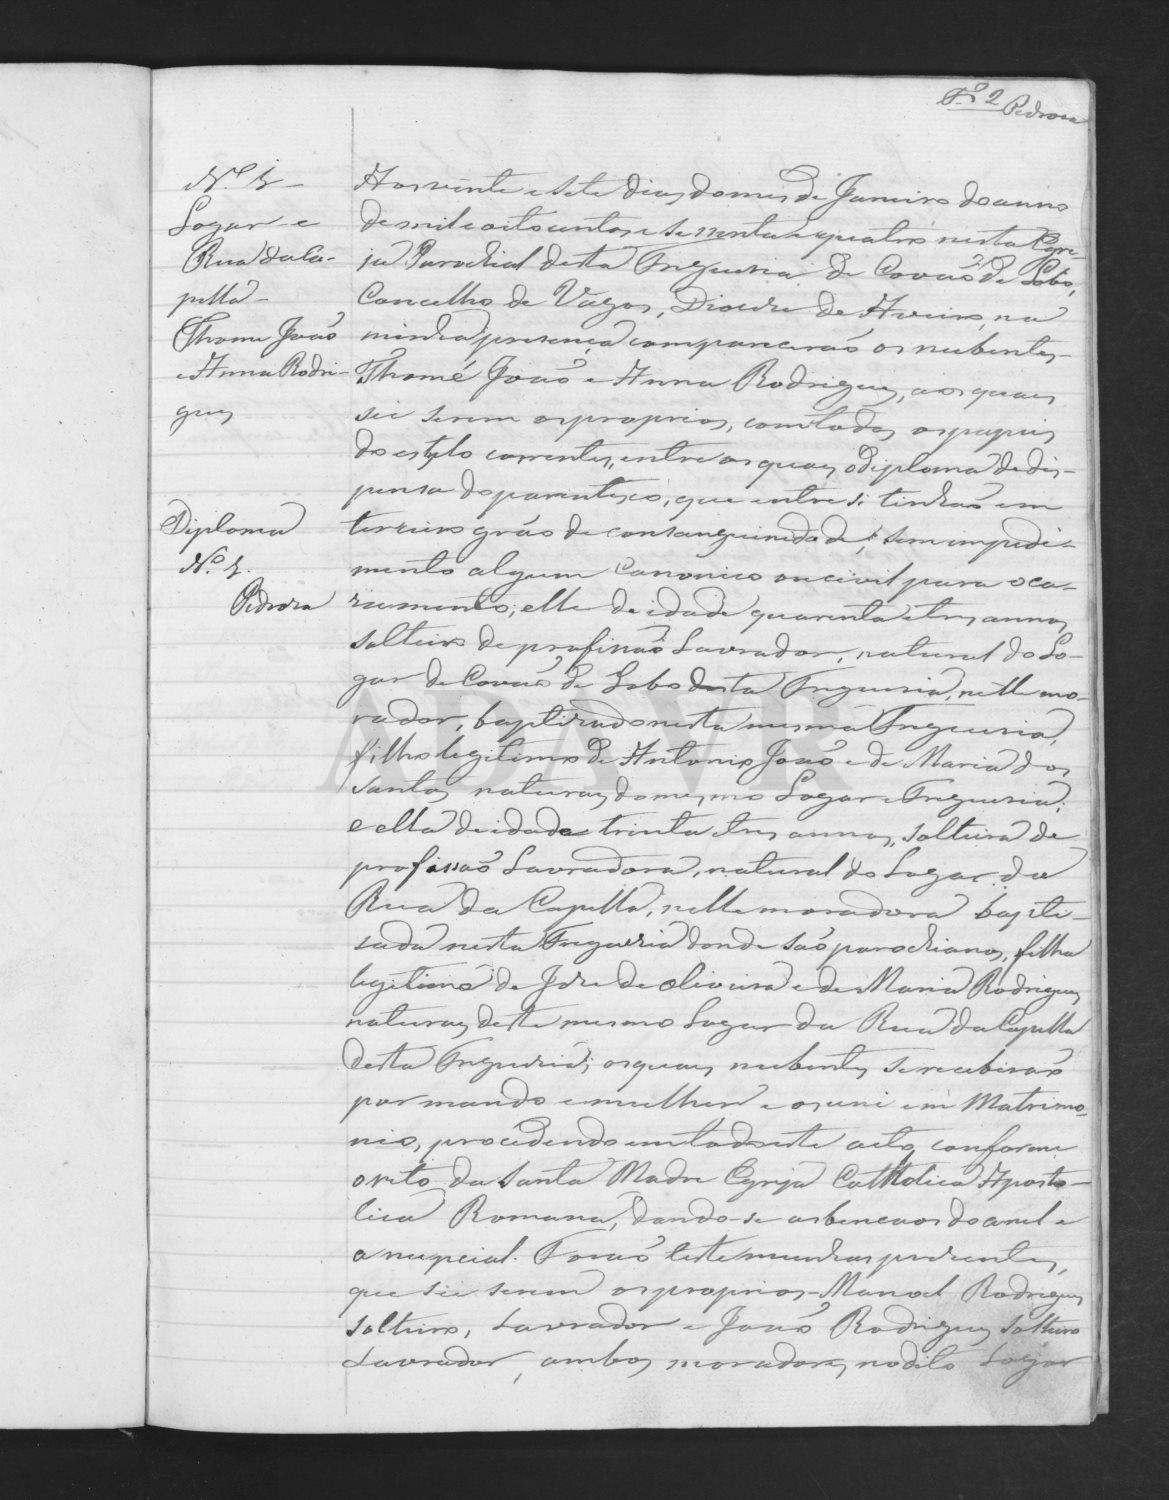 Fs 2 Pedroza
Nº 1
Logar e
Rua da Ca-
pella
Thome João
e Anna Rodri-
gues
Diploma
Nº 1.
Pedroza
Aos vinte e sete dias do mes de Janeiro do anno
de mil e oitocentos e sessenta e quatro nesta Egre-
ja Parochial desta Freguezia de Covão de Lobo,
Concelho de Vagos, Diocese de Aveiro, na
minha presença comparecerão os nubentes
Thomé João e Anna Rodrigues, aos quaes
sei serem os proprios, com todos os papeis
do estylo correntes, entre os quaes o diploma de dis-
pensa do parentesco, que entre si tinhão em
terceiro gráo de consanguinidade, e sem impedi-
mento algum canonico ou civil para o ca-
zamento; elle de idade quarenta e tres annos,
solteiro de profissão Lavrador, natural do Lo-
gar de Covão de Lobo desta Freguezia, nelle mo-
rador, baptizado nesta mesma Freguezia,
filho legitimo de Antonio João e de Maria dos
Santos naturaes do mesmo Logar e Freguezia;
e ella de idade trinta e tres annos, solteira de
profissão Lavradora, natural do Logar da
Rua da Capella, nelle moradora bapti-
sada nesta Freguezia donde são parochianos, filha
legitima de Jose de Oliveira e de Maria Rodrigues
naturaes deste mesmo Logar da Rua da Capella
desta Freguezia; os quaes nubentes se receberão
por marido e mulher e os uni em Matrimo-
nio, procedendo em todo este acto conforme
o rito da Santa Madre Egreja Catholica Aposto-
lica Romana, dando-se as bencaos do anel e
a nupcial. Forão testemunhas prezentes,
que sei serem os proprios Manoel Rodrigues
solteiro, Lavrador e João Rodrigues solteiro
Lavrador, ambos moradores no dito Logar
ADAVR